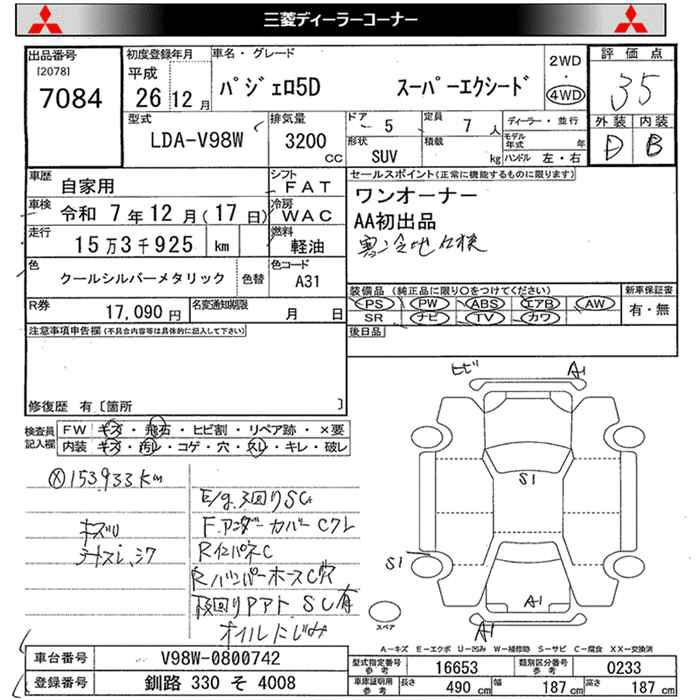 三菱ディーラーコーナー
出品番号 初度登録年月 車名・グレード 2WD 評価点
[2078] 平成 ・
7084 26年 12月 パジェロ5D スーパーエクシード 4WD 35
型式 排気量 ドア 5 定員 7人 ディーラー・並行 外装 内装
LDA-V98W 3200cc 形状 SUV 積載 kg モデル年式 年 D B
ハンドル 左・右
車歴 自家用 シフト FAT セールスポイント(正常に機能するものに限ります)
車検 令和 7年 12月 (17日) 冷房 WAC ワンオーナー
走行 15万3千925 km 燃料 軽油 AA初出品
寒冷地仕様
色 クールシルバーメタリック 色替 色コード A31
装備品 (純正品に限り○をつけてください) 新車保証書
R券 17,090円 名変通知期限 月 日 PS PW ABS エアB AW 有・無
SR ナビ TV カワ
注意事項申告欄(不具合内容等は具体的に記入して下さい) 後日品
修復歴 有〔箇所 〕
検査員記入欄 FW キズ・飛石・ヒビ割・リペア跡・×要
内装 キズ・汚レ・コゲ・穴・スレ・キレ・破レ
ヒビ A1
S1
S1
A1
A1
スペア
ⓧ153933km
E/g.3回りSC
F.アンダーカバーCワレ
RインパネC
RバンパーホースC穴
下回りPアト SC有
オイルにじみ
A-キズ E-エクボ U-凹み W-補修跡 S-サビ C-腐食 XX-交換済
車台番号 V98W-0800742 型式指定番号参考 16653 類別区分番号参考 0233
登録番号 釧路 330 そ 4008 車庫証明用参考 長さ 490cm 幅 187cm 高さ 187cm